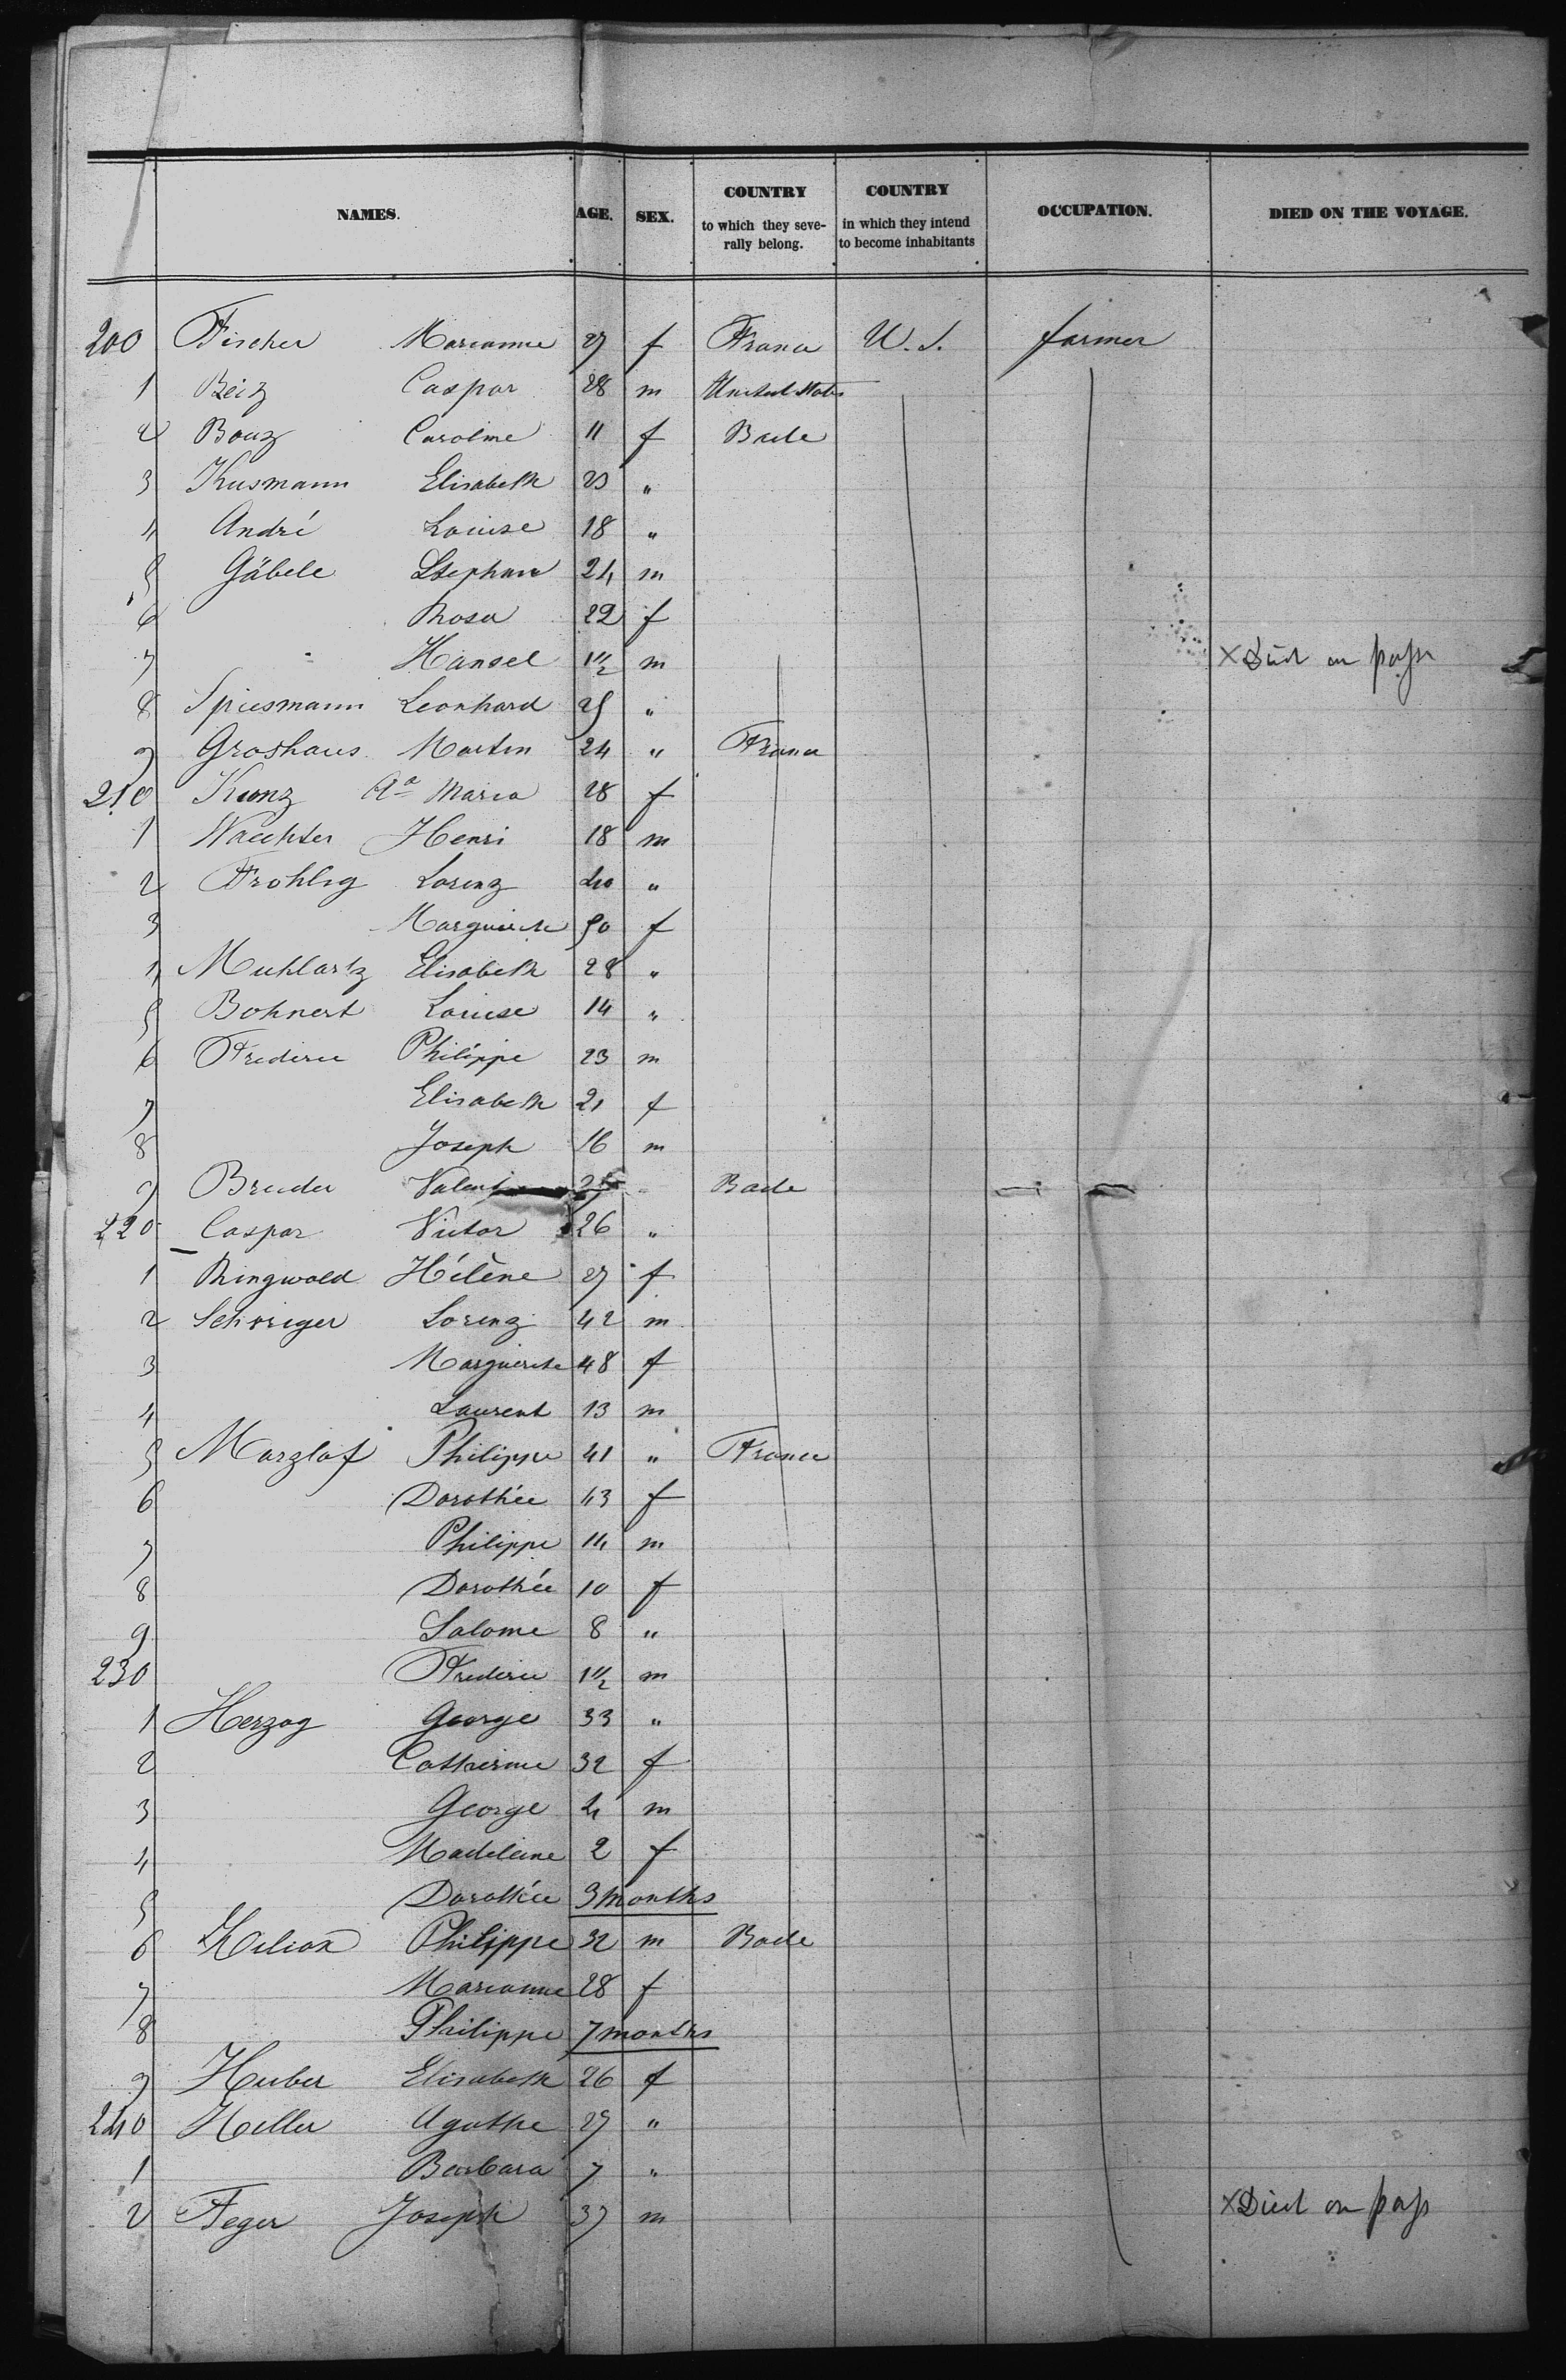 NAMES. AGE. SEX. COUNTRY to which they severally belong. COUNTRY in which they intend to become inhabitants OCCUPATION. DIED ON THE VOYAGE.
200 Fischer Marianne 27 f France U.S. farmer
1 Beiz Caspar 28 m United States
2 Bouz Caroline 11 f Bade
3 Kusmann Elisabeth 23 "
4 André Louise 18 "
5 Gäbele Stephan 24 m
6 Rosa 22 f
7 Hansel 1 1/2 m × Died on pass
8 Spiesmann Leonhard 25 "
9 Groshaus Martin 24 " France
210 Kunz Aª Maria 28 f
1 Waechter Henri 18 m
2 Frohlig Lorenz 40 "
3 Marguerite 50 f
4 Muhlartz Elisabeth 28 "
5 Bohnert Louise 14 "
6 Frederic Philippe 23 m
7 Elisabeth 21 f
8 Joseph 16 m
9 Bruder Valent " Bade
220 Caspar Victor 26 "
1 Ringwald Hélène 27 f
2 Lorenz 42 m
3 Marguerite 48 f
4 Laurent 13 m
5 Marzlof Philippe 41 " France
6 Dorothée 43 f
7 Philippe 14 m
8 Dorothée 10 f
9 Salome 8 "
230 Frederic 1 1/2 m
1 Herzog George 33 "
2 Catherine 32 f
3 George 4 m
4 Madeleine 2 f
5 Dorothée 3 months
6 Kilian Philippe 32 m Bade
7 Marianne 28 f
8 Philippe 7 months
9 Huber Elisabeth 26 f
240 Heller Agathe 27 "
1 Barbara 7 "
2 Feger Joseph 37 m × Died on pass